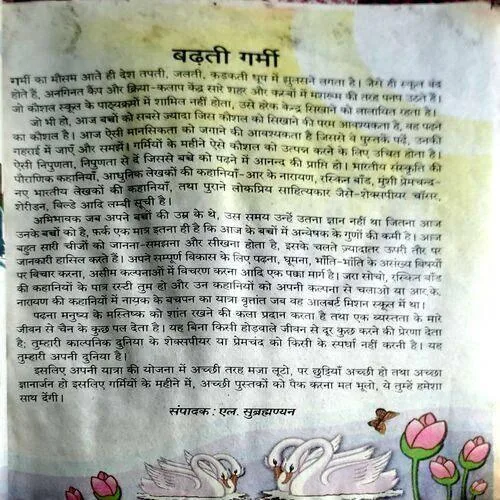 बढ़ती गर्मी
गर्मी का मौसम आते ही देश तपती, जलती, कड़कती धूप में झुलसने लगता है। जैसे ही स्कूल बंद
होते हैं, अनगिनत कैंप और क्रिया-कलाप केंद्र सारे शहर और कस्बों में मशरूम की तरह पनप उठते हैं।
जो कौशल स्कूल के पाठ्यक्रमों में शामिल नहीं होता, उसे हरेक केन्द्र सिखाने को लालायित रहता है।
जो भी हो, आज बच्चों को सबसे ज्यादा जिस कौशल को सिखाने की परम आवश्यकता है, वह पढ़ने
का कौशल है। आज ऐसी मानसिकता को जगाने की आवश्यकता है जिससे वे पुस्तकें पढ़ें, उनकी
गहराई में जाएँ और समझें। गर्मियों के महीने ऐसे कौशल को उत्पन्न करने के लिए उचित होता है।
ऐसी निपुणता, निपुणता से दें जिससे बच्चे को पढ़ने में आनन्द की प्राप्ति हो। भारतीय संस्कृति की
पौराणिक कहानियाँ, आधुनिक लेखकों की कहानियाँ-आर के नारायण, रस्किन बॉंड, मुंशी प्रेमचन्द-
नए भारतीय लेखकों की कहानियाँ, तथा पुराने लोकप्रिय साहित्यकार जैसे-शेक्सपीयर चॉसर,
शेरीडन, चिल्डे आदि लम्बी सूची है।
अभिभावक जब अपने बच्चों की उम्र के थे, उस समय उन्हें उतना ज्ञान नहीं था जितना आज
उनके बच्चों को है, फ़र्क एक मात्र इतना ही है कि आज के बच्चों में अन्वेषक के गुणों की कमी है। आज
बहुत सारी चीजों को जानना-समझना और सीखना होता है, इसके चलते ज़्यादातर ऊपरी तौर पर
जानकारी हासिल करते हैं। अपने सम्पूर्ण विकास के लिए पढ़ना, घूमना, भाँति-भाँति के असंख्य विषयों
पर बिचार करना, असीम कल्पनाओं में विचरण करना आदि एक पक्का मार्ग है। जरा सोचो, रस्किन बॉंड
की कहानियों के पात्र रस्टी तुम हो और उन कहानियों को अपनी कल्पना से चलाओ या आर.के.
नारायण की कहानियों में नायक के बचपन का यात्रा वृत्तांत जब वह आलबर्ट मिशन स्कूल में था।
पढ़ना मनुष्य के मस्तिष्क को शांत रखने की कला प्रदान करता है तथा एक व्यस्तता के मारे
जीवन से चैन के कुछ पल देता है। यह बिना किसी होडवाले जीवन से दूर कुछ करने की प्रेरणा देता
है; तुम्हारी काल्पनिक दुनिया के शेक्सपीयर या प्रेमचंद को किसी के स्पर्धा नहीं करनी है। यह
तुम्हारी अपनी दुनिया है।
इसलिए अपनी यात्रा की योजना में अच्छी तरह मजा लूटो, पर छुट्टियाँ अच्छी हो तथा अच्छा
ज्ञानार्जन हो इसलिए गर्मियों के महीने में, अच्छी पुस्तकों को पैक करना मत भूलो, ये तुम्हें हमेशा
साथ देंगी।
संपादक : एल. सुब्रह्मण्यन